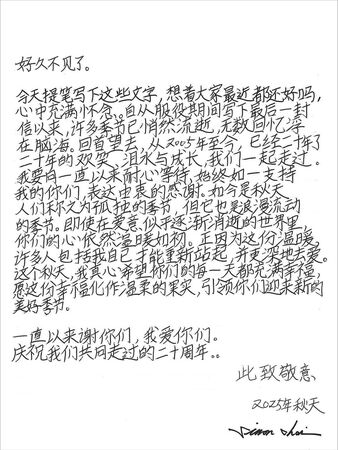 好久不见了。
今天提笔写下这些文字，想着大家最近都还好吗，
心中充满怀念。自从服役期间写下最后一封
信以来，许多季节已悄然流逝，无数回忆浮
在脑海。回首望去，从2005年至今，已经二十年了
二十年的欢笑、泪水与成长，我们一起走过。
我要向一直以来耐心等待，始终如一支持
我的你们，表达由衷的感谢。如今是秋天
人们称之为孤独的季节，但它也是浪漫流动
的季节。即使在爱意似乎逐渐消逝的世界里，
你们的心依然温暖如初。正因为这份温暖，
许多人包括我自己才能重新站起，并更深地去爱。
这个秋天，我真心希望你们的每一天都充满幸福，
愿这份幸福化作温柔的果实，引领你们迎来新的
美好季节。
一直以来谢谢你们，我爱你们。
庆祝我们共同走过的二十周年。。
此致敬意
2025年秋天
Simon Choi